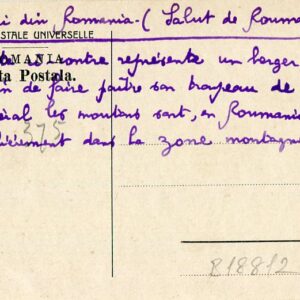 i din Romania - ( Salut de Roum
POSTALE UNIVERSELLE
ROMANIA
ta Postala.
contre représente un berger
n de faire paître son troupeau de
éral les moutons sont, en Roumani
lièrement dans la zone montagn
375
818812